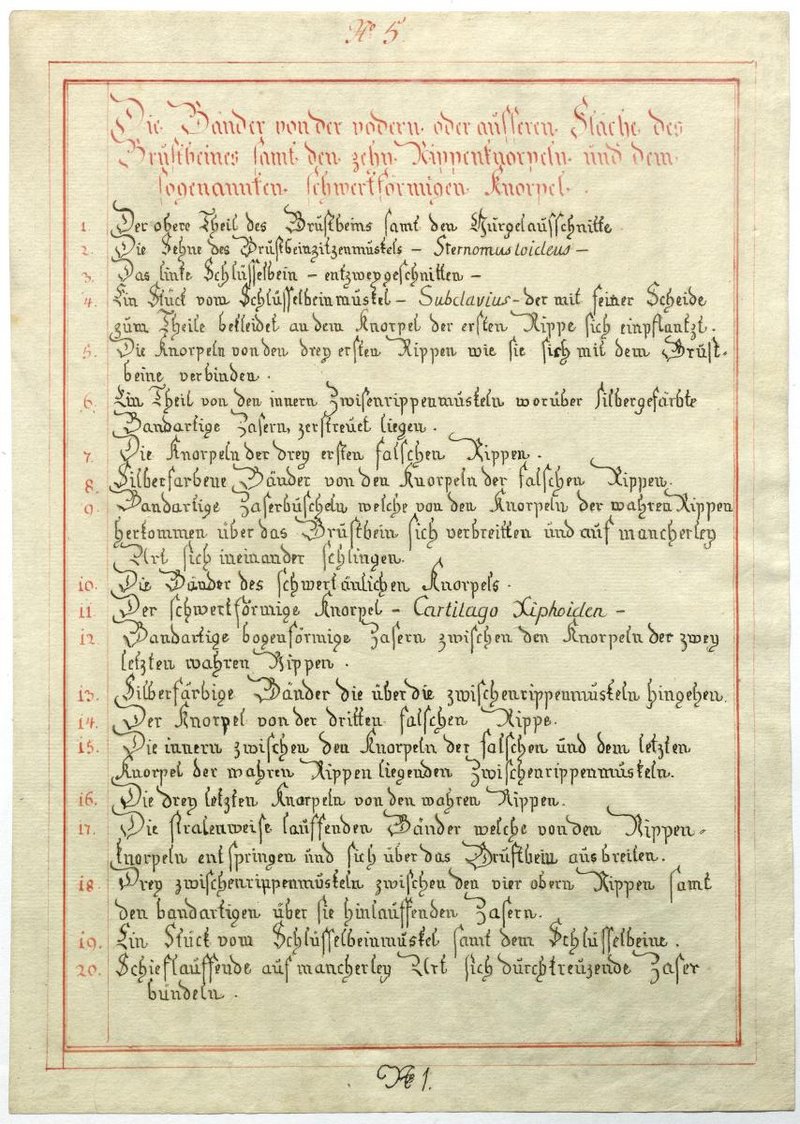 No 5
Die Bänder von der vodern oder aüsseren Fläche des
Brüstbeines samt den zehn Rippenknorpeln und dem
sogenannten schwertförmigen Knorpel.
1. Der obere Theil des Brüstbeins samt den Gurgelausschnitte
2. Die Sehne des Brüstbeinzitzenmüskels – Sternomustoideus –
3. Das linke Schlüsselbein – entzweygeschnitten –
4. Ein Stück vom Schlüsselbeinmüskel – Subclavius – der mit seiner Scheide
züm Theile bekleidet an dem Knorpel der ersten Rippe sich einpflantzt.
5. Die Knorpeln von den drey ersten Rippen wie sie sich mit dem Brüst-
beine verbinden.
6. Ein Theil von den innern Zwisenrippenmüskeln worüber silbergefärbte
Bandartige Zasern, zerstreuet liegen.
7. Die Knorpeln der drey ersten falschen Rippen.
8. Silberfarbene Bänder von den Knorpeln der falschen Rippen.
9. Bandartige Zaserbüscheln welche von den Knorpeln der wahren Rippen
herkommen über das Brüstbein sich verbreitten ünd auf mancherley
Art sich ineinander schlingen.
10. Die Bänder des schwertänlichen Knorpels.
11. Der schwertförmige Knorpel – Cartilago Xiphoiden –
12 Bandartige bogenförmige Zasern zwischen den Knorpeln der zwey
letzten wahren Rippen.
13. Silberfärbige Bänder die über die zwischenrippenmüskeln hingehen.
14. Der Knorpel von der dritten falschen Rippe.
15. Die innern zwischen den Knorpeln der falschen ünd dem letzten
Knorpel der wahren Rippen liegenden Zwischenrippenmüskeln.
16. Die drey letzten Knorpeln von den wahren Rippen.
17. Die stralenweise lauffenden Bänder welche von den Rippen-
knorpeln entspringen ünd sich über das Brüstbein ausbreiten.
18. Drey zwischenrippenmüskeln zwischen den vier obern Rippen samt
den bandartigen über sie hinlauffenden Zasern.
19. Ein Stück vom Schlüsselbeinmüskel samt dem Schlüsselbeine.
20. Schieflauffende auf mancherley Art sich dürchkreüzende Zaser
bündeln.
No 1.